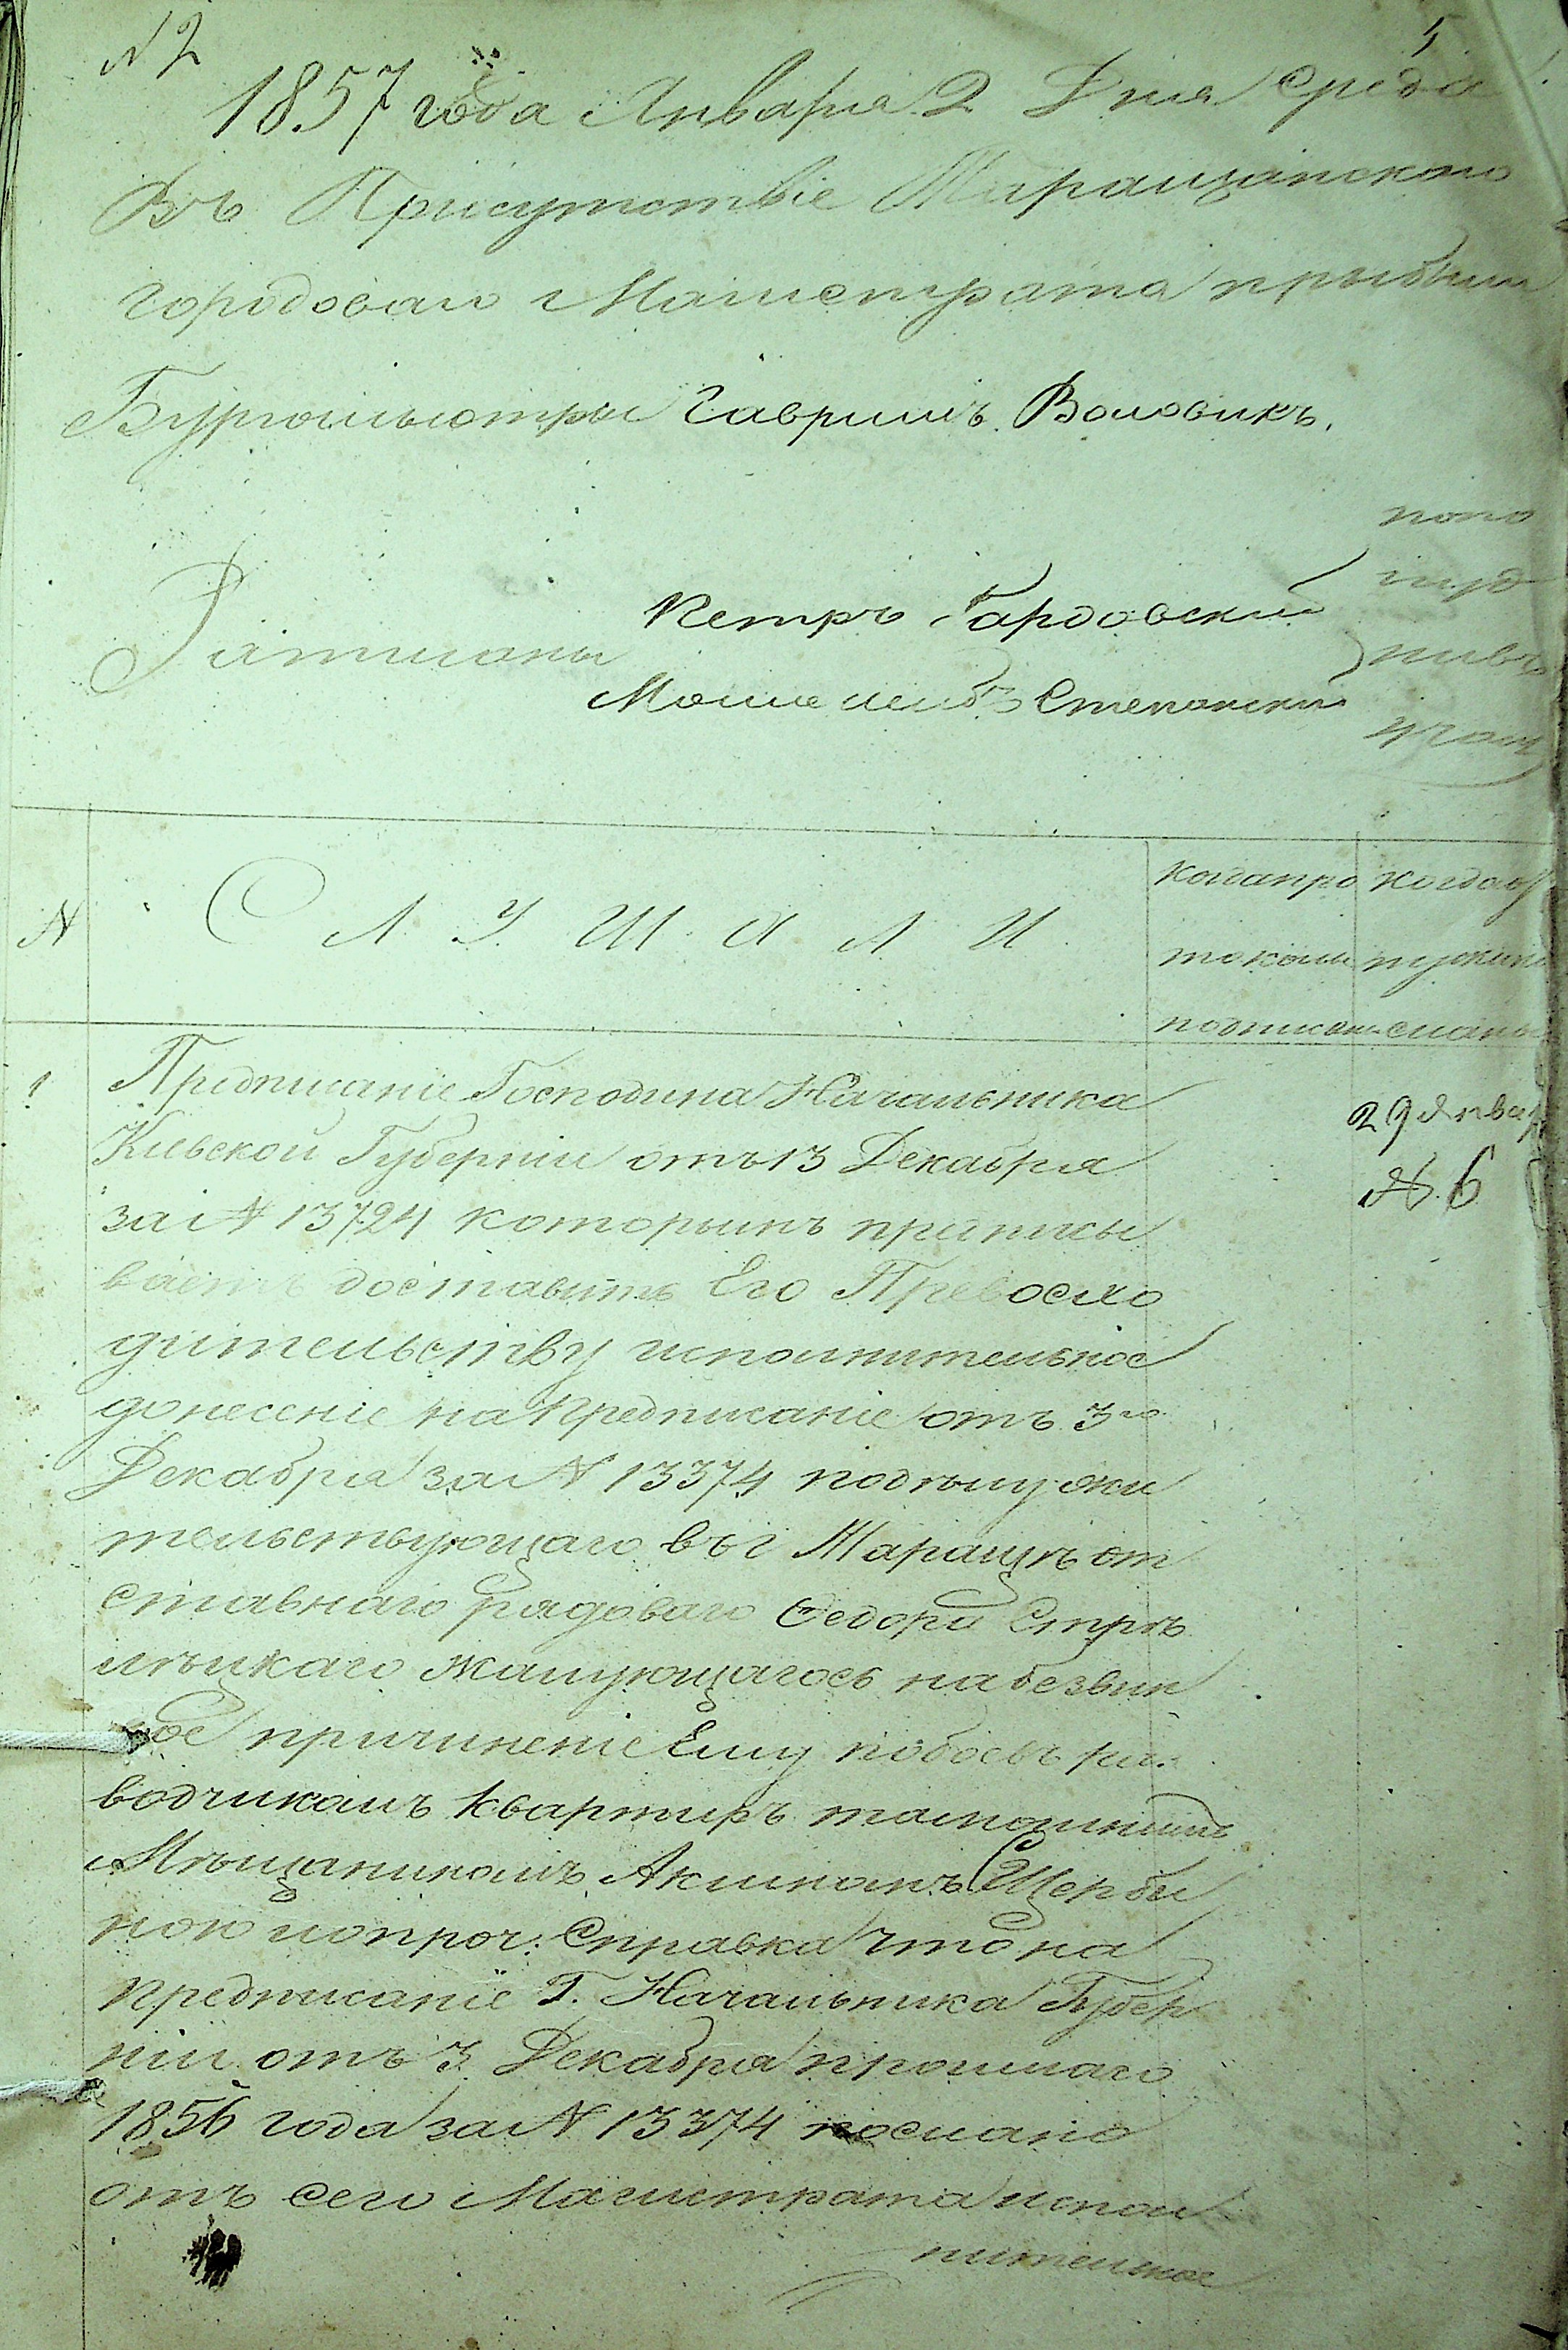 N 2
5
1857 года Января 2 Дня Среда
Въ Присутствіе Таращанского
городоваго Магистрата прибыли
Бургомистры Гаврилъ Воловикъ.
попо
Ратманы
Петръ Гардовскій
Мошко Лейбъ Степанскій
N
СЛУШАЛИ
Когда про
токолъ
подписан
Когда
1
Предписаніе Господина Начальника
Кіевской Губерніи отъ 13 Декабря
за N 13724 которымъ предписы
ваетъ доставить Его Превосхо
дительству исполнительное
донесеніе на предписаніе отъ 3го
Декабря за N 13374 по дѣлу жи
тельствующаго въ г Таращѣ от
ставнаго рядоваго Федора Стрѣ
лѣцкаго жалующагося на безвин
ное причиненіе Ему побоевъ раз
водчикомъ квартиръ тамошнимъ
Мѣщаниномъ Акимомъ Щерби
ною и проч: Справка что на
предписаніе Г. Начальника Губер
ніи отъ 3 Декабря прошлаго
1856 года за N 13374 послано
отъ сего Магистрата испол
нительное
29 Январ
N. 6